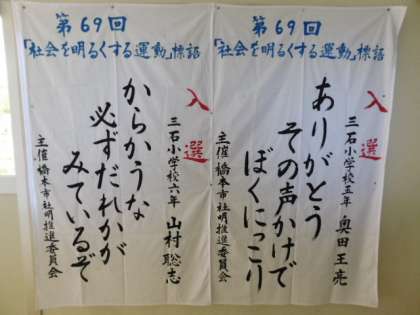 第69回
「社会を明るくする運動」標語
入選
三石小学校五年 奥田王亮
ありがとう
その声かけで
ぼくにっこり
主催 橋本市社明推進委員会
第69回
「社会を明るくする運動」標語
入選
三石小学校六年 山村聡志
からかうな
必ずだれかが
みているぞ
主催 橋本市社明推進委員会